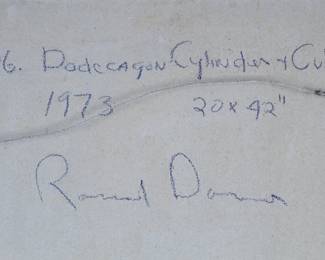 6. Dodecagon Cylinder + Cu
1973 20 x 42"
Ronald Davis